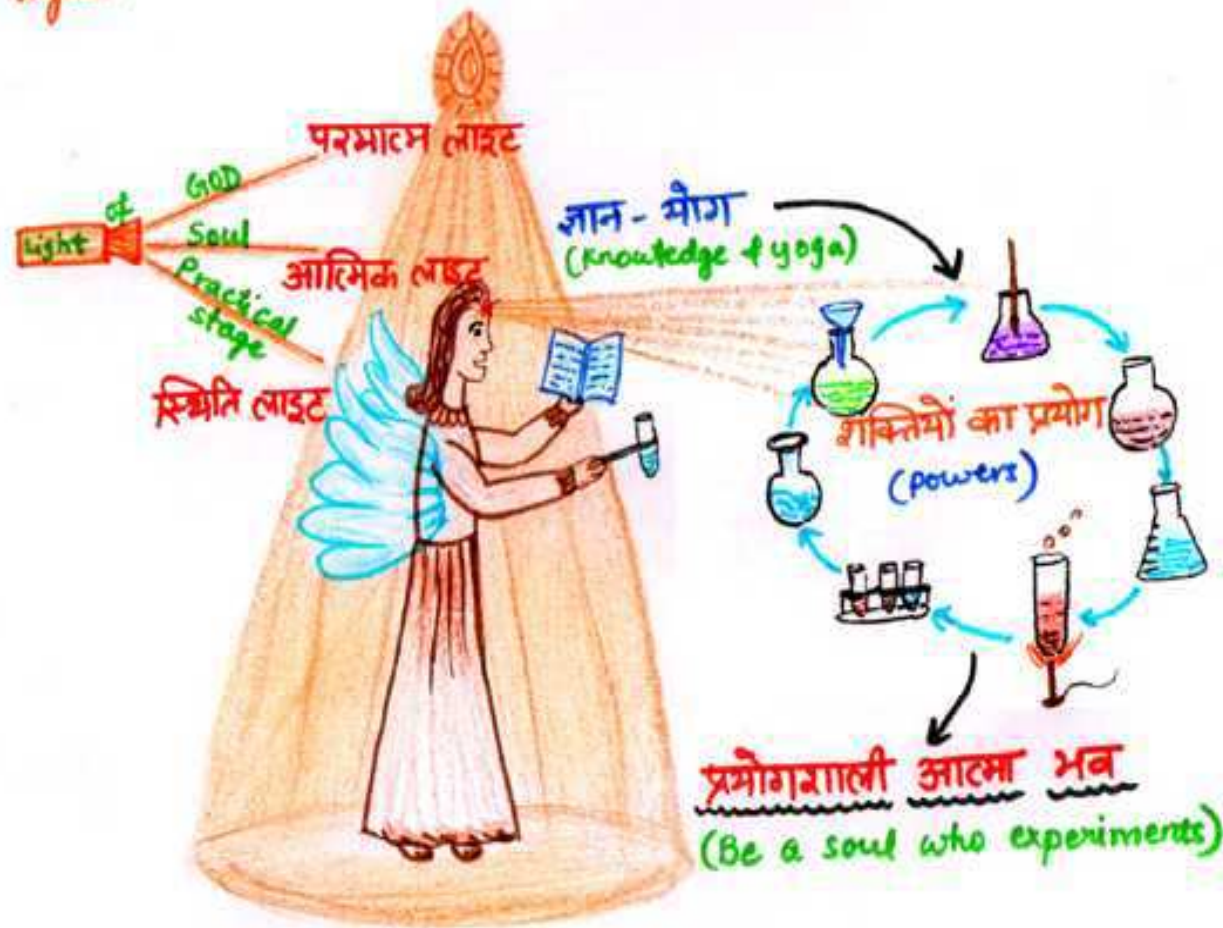 परमात्म लाइट
GOD
of
Light
Soul
आत्मिक लाइट
Practical
stage
स्थिति लाइट
ज्ञान - योग
(Knowledge & yoga)
शक्तियों का प्रयोग
(powers)
प्रयोगशाली आत्मा भव
(Be a soul who experiments)